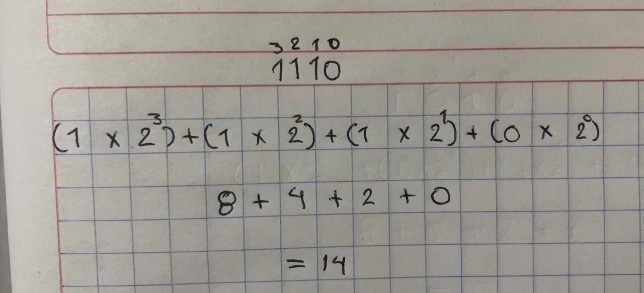 3 2 1 0
1110
(1 x 2³) + (1 x 2²) + (1 x 2¹) + (0 x 2⁰)
8 + 4 + 2 + 0
= 14